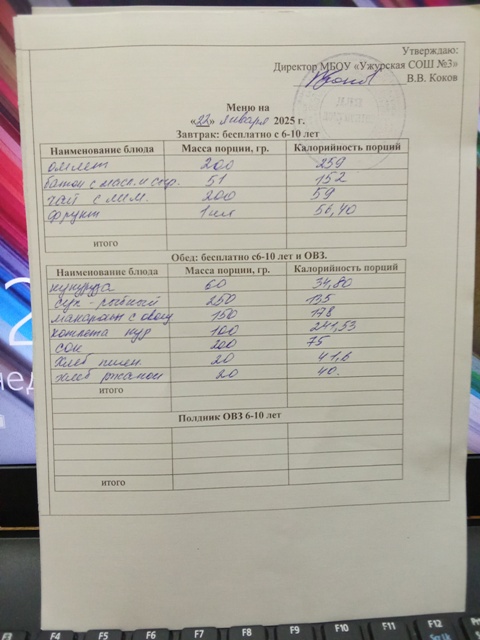 Утверждаю:
Директор МБОУ «Ужурская СОШ №3»
В.В. Коков
Меню на
«22» января 2025 г.
Завтрак: бесплатно с 6-10 лет
Наименование блюда Масса порции, гр. Калорийность порций
омлет 200 259
батон с масл. и сыр. 51 152
чай с лим. 200 59
фрукт 1 шт 56,40
итого
Обед: бесплатно с6-10 лет и ОВЗ.
Наименование блюда Масса порции, гр. Калорийность порций
кукуруза 60 34,80
суп - рыбный 250 135
макароны с овощ 150 178
котлета кур 100 241,53
сок 200 75
хлеб пшен. 20 41,6
хлеб ржаной 20 40.
итого
Полдник ОВЗ 6-10 лет
итого
F4 F5 F6 F7 F8 F9 F10 F11 F12